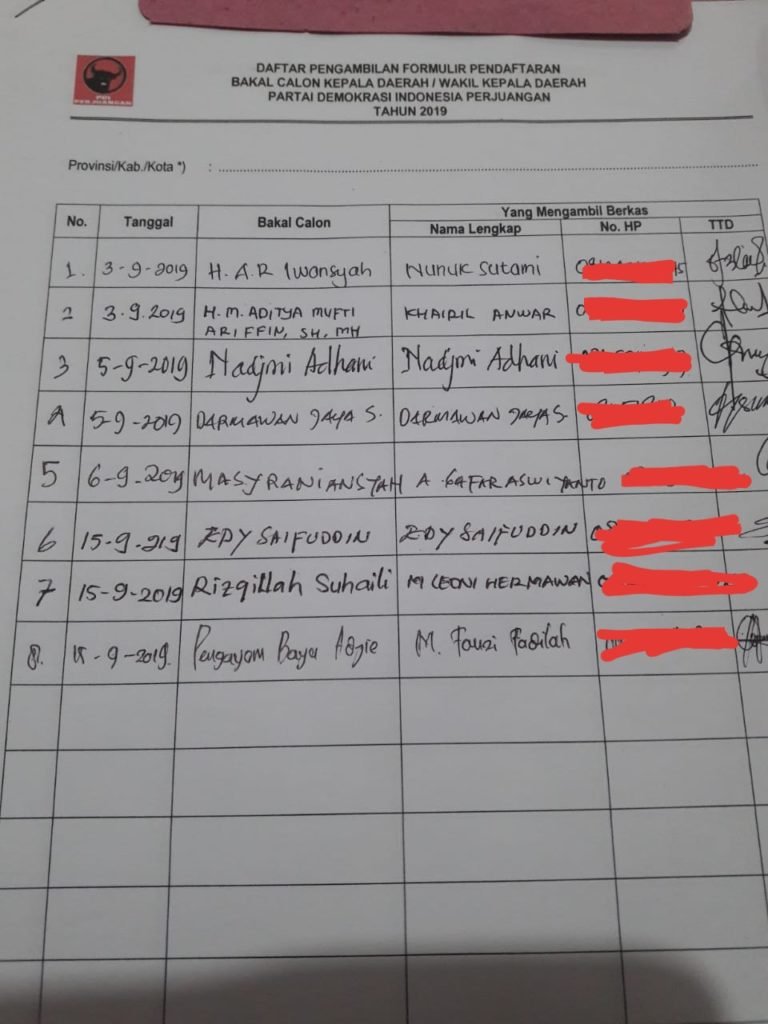 PDI
PERJUANGAN
DAFTAR PENGAMBILAN FORMULIR PENDAFTARAN
BAKAL CALON KEPALA DAERAH / WAKIL KEPALA DAERAH
PARTAI DEMOKRASI INDONESIA PERJUANGAN
TAHUN 2019
Provinsi/Kab./Kota *) :
No. Tanggal Bakal Calon Yang Mengambil Berkas
Nama Lengkap No. HP TTD
1. 3-9-2019 H. A.R Iwansyah Nunuk Sutami
2 3.9.2019 H.M. ADITYA MUFTI KHAIRIL ANWAR
ARIFFIN, SH, MH
3 5-9-2019 Nadjmi Adhani Nadjmi Adhani
4 5-9-2019 DARMAWAN JAYA S. DARMAWAN JAYA S.
5 6-9-2019 MASYRANIANSYAH A GAFAR ASWIYANTO
6 15-9-219 EDY SAIFUDDIN EDY SAIFUDDIN
7 15-9-2019 Rizqillah Suhaili M LEONI HERMAWAN
8. -9-2019. Bayu M. Fauzi Fadilah